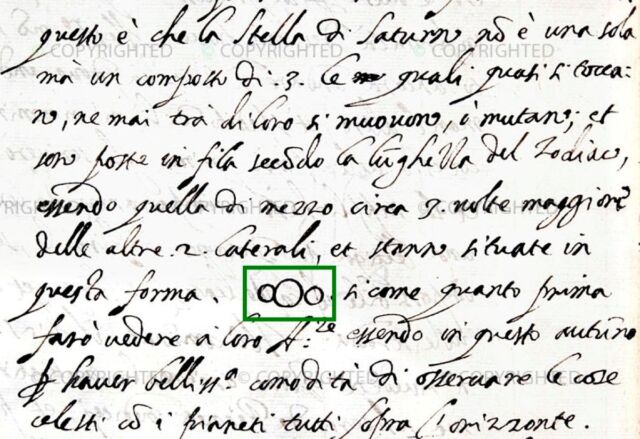 questo è che la Stella di Saturno nō è una sola
mà un composto di .3. le quali quasi si tocca-
no, ne mai trà di loro si muovono, ò mutano; et
son poste in fila secōdo la lūghezza del Zodiaco,
essendo quella di mezzo circa 3. volte maggiore
delle altre .2. laterali, et stanno situate in
questa forma. si come quanto prima
farò vedere à loro A.ze essendo in questo autūno
ꝑ haver belliss.a comodità di osservare le cose
celesti cō i pianeti tutti sopra l'orizzonte.
© COPYRIGHTED © COPYRIGHTED © COPYRIGHTED